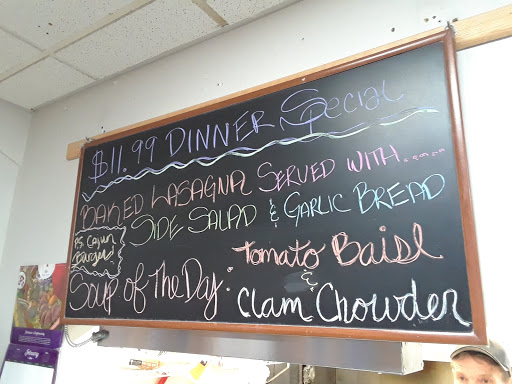 $11.99 DINNER Special
BAKED LASAGNA SERVED WITH......
SIDE SALAD & GARLIC BREAD
PS Cajun
Burgers
Soup of The Day:
Tomato Baisl
&
Clam Chowder